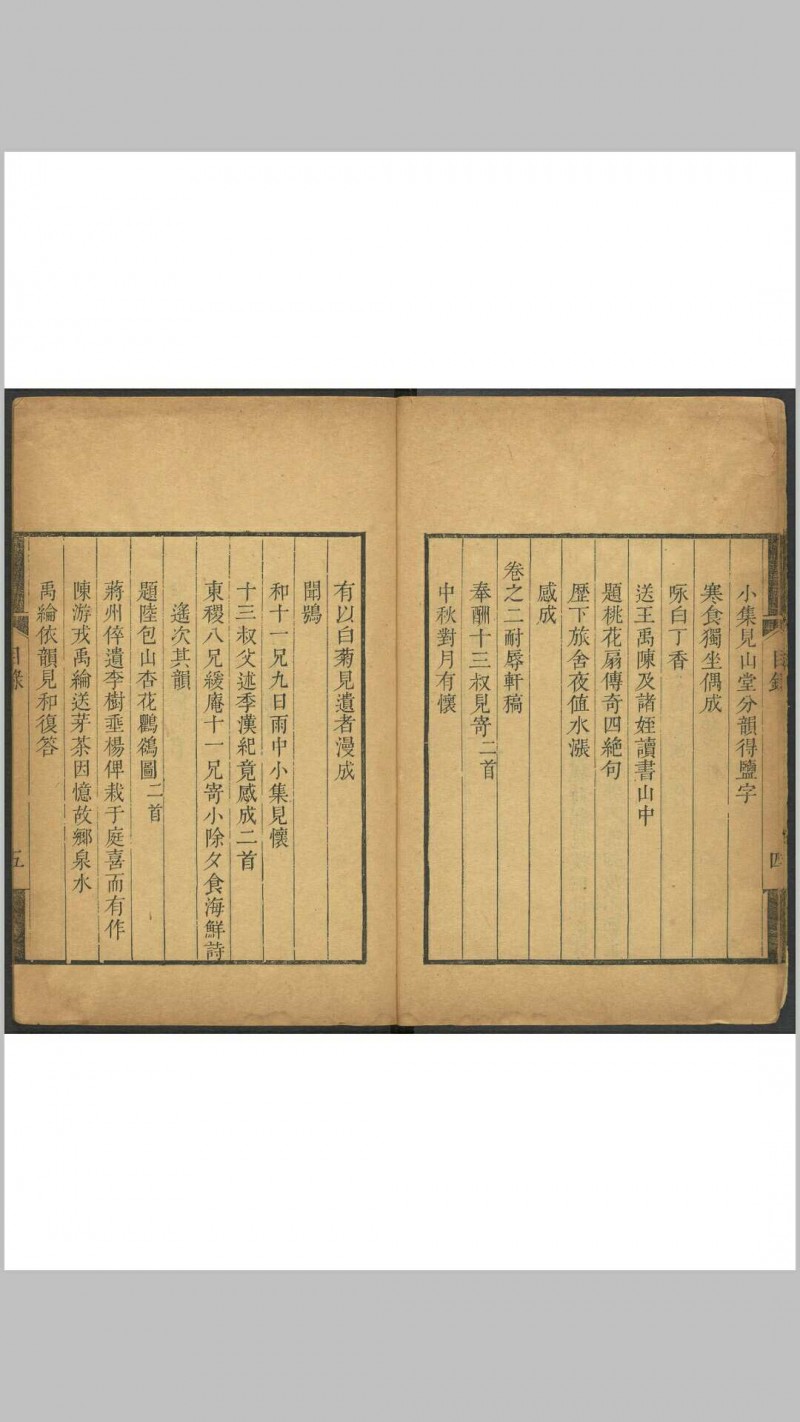 小集見山堂分韻得鹽字
寒食獨坐偶成
咏白丁香
送王禹陳及諸姪讀書山中
題桃花扇傳奇四絶句
歷下旅舍夜値水漲
感成
卷之二耐辱軒稿
奉酬十三叔見寄二首
中秋對月有懷
目錄
四
有以白菊見遺者漫成
聞鴞
和十一兄九日雨中小集見懷
十三叔父述季漢紀竟感成二首
東稷八兄綏庵十一兄寄小除夕食海鮮詩
遙次其韻
題陸包山杏花鸜鵒圖二首
蔣州倅遺李樹埀楊俾栽于庭喜而有作
陳游戎禹綸送芽茶因憶故鄉泉水
禹綸依韻見和復答
目錄
五